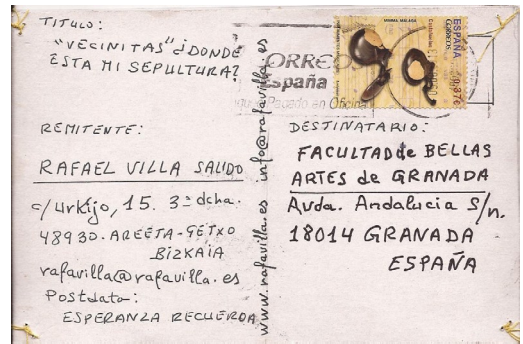 TITULO:
"VECINITAS" ¿DONDE
ESTA MI SEPULTURA?
REMITENTE:
RAFAEL VILLA SALIDO
c/Urkijo, 15. 3º dcha.
48930-AREETA-GETXO
BIZKAIA
rafavilla@rafavilla.es
Postdata:
ESPERANZA RECUERDA
www.rafavilla.es info@rafavilla.es
CORREOS
España
Pagado en Oficina
ESPAÑA
CORREOS
0,37€
DESTINATARIO:
FACULTAD de BELLAS
ARTES de GRANADA
Avda. Andalucia S/n.
18014 GRANADA
ESPAÑA